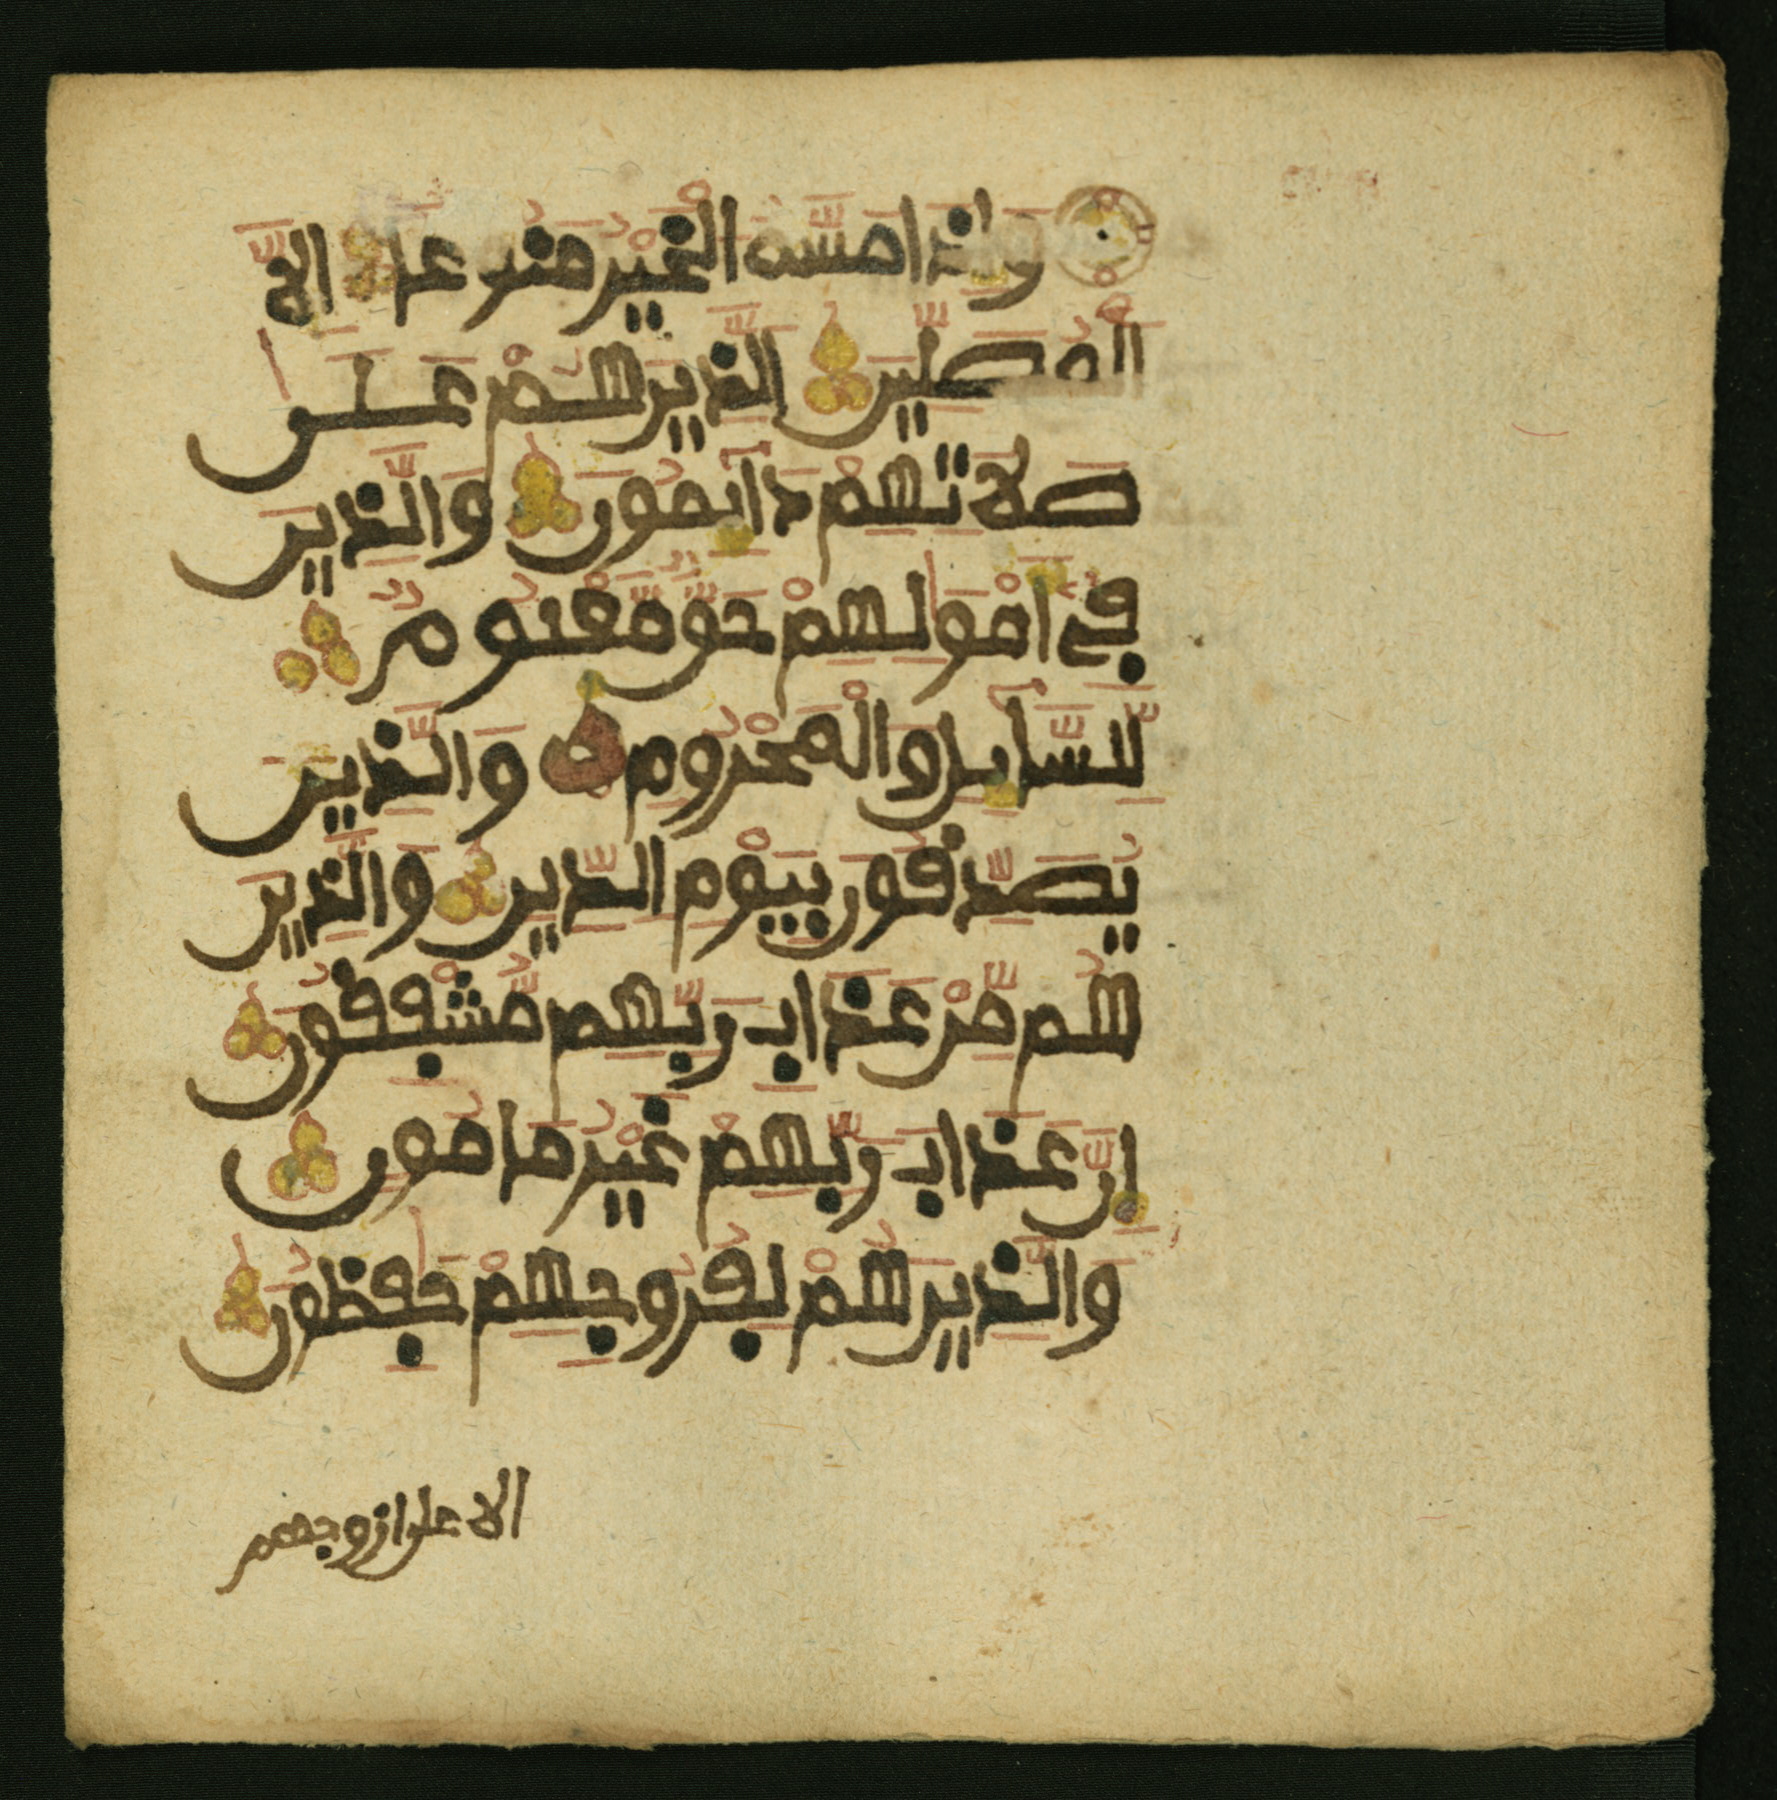 وَإِذَا مَسَّهُ الْخَيْرُ مَنُوعًا إِلَّا
الْمُصَلِّينَ الَّذِينَ هُمْ عَلَىٰ
صَلَاتِهِمْ دَآئِمُونَ وَالَّذِينَ
فِي أَمْوَٰلِهِمْ حَقٌّ مَّعْلُومٌ
لِّلسَّآئِلِ وَالْمَحْرُومِ وَالَّذِينَ
يُصَدِّقُونَ بِيَوْمِ الدِّينِ وَالَّذِينَ
هُم مِّنْ عَذَابِ رَبِّهِم مُّشْفِقُونَ
إِنَّ عَذَابَ رَبِّهِمْ غَيْرُ مَامُونٍ
وَالَّذِينَ هُمْ لِفُرُوجِهِمْ حَٰفِظُونَ
الا علىازوجهم